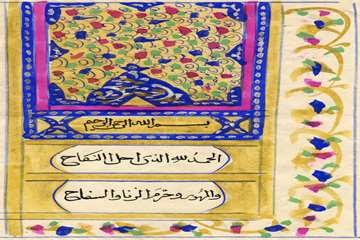 بسم الله الرحمن الرحيم
الحمد لله الذى احل النكاح
والمهر وحرم الزنا والسفاح